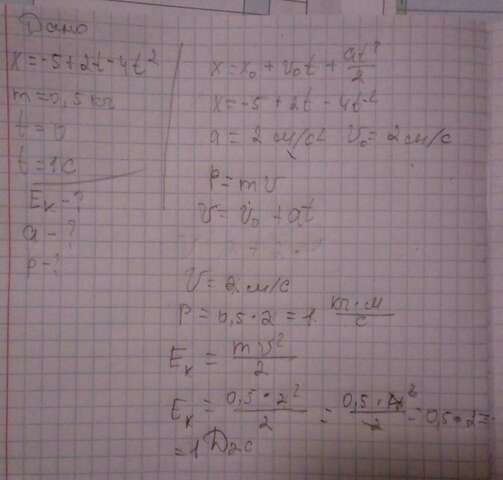 Дано
x = -5 + 2t - 4t²
m = 0,5 кг
t = 0
t = 1c
Eк - ?
a - ?
p - ?
x = x₀ + v₀t + at²/2
x = -5 + 2t - 4t²
a = 2 м/с² V₀ = 2 м/с
P = mV
V = V₀ + at
V = 2 м/с
P = 0,5 · 2 = 1 кг·м/с
Eк = mv²/2
Eк = 0,5 · 2²/2 = 0,5 · 4²/2 = 0,5 · 2 =
= 1 Dж